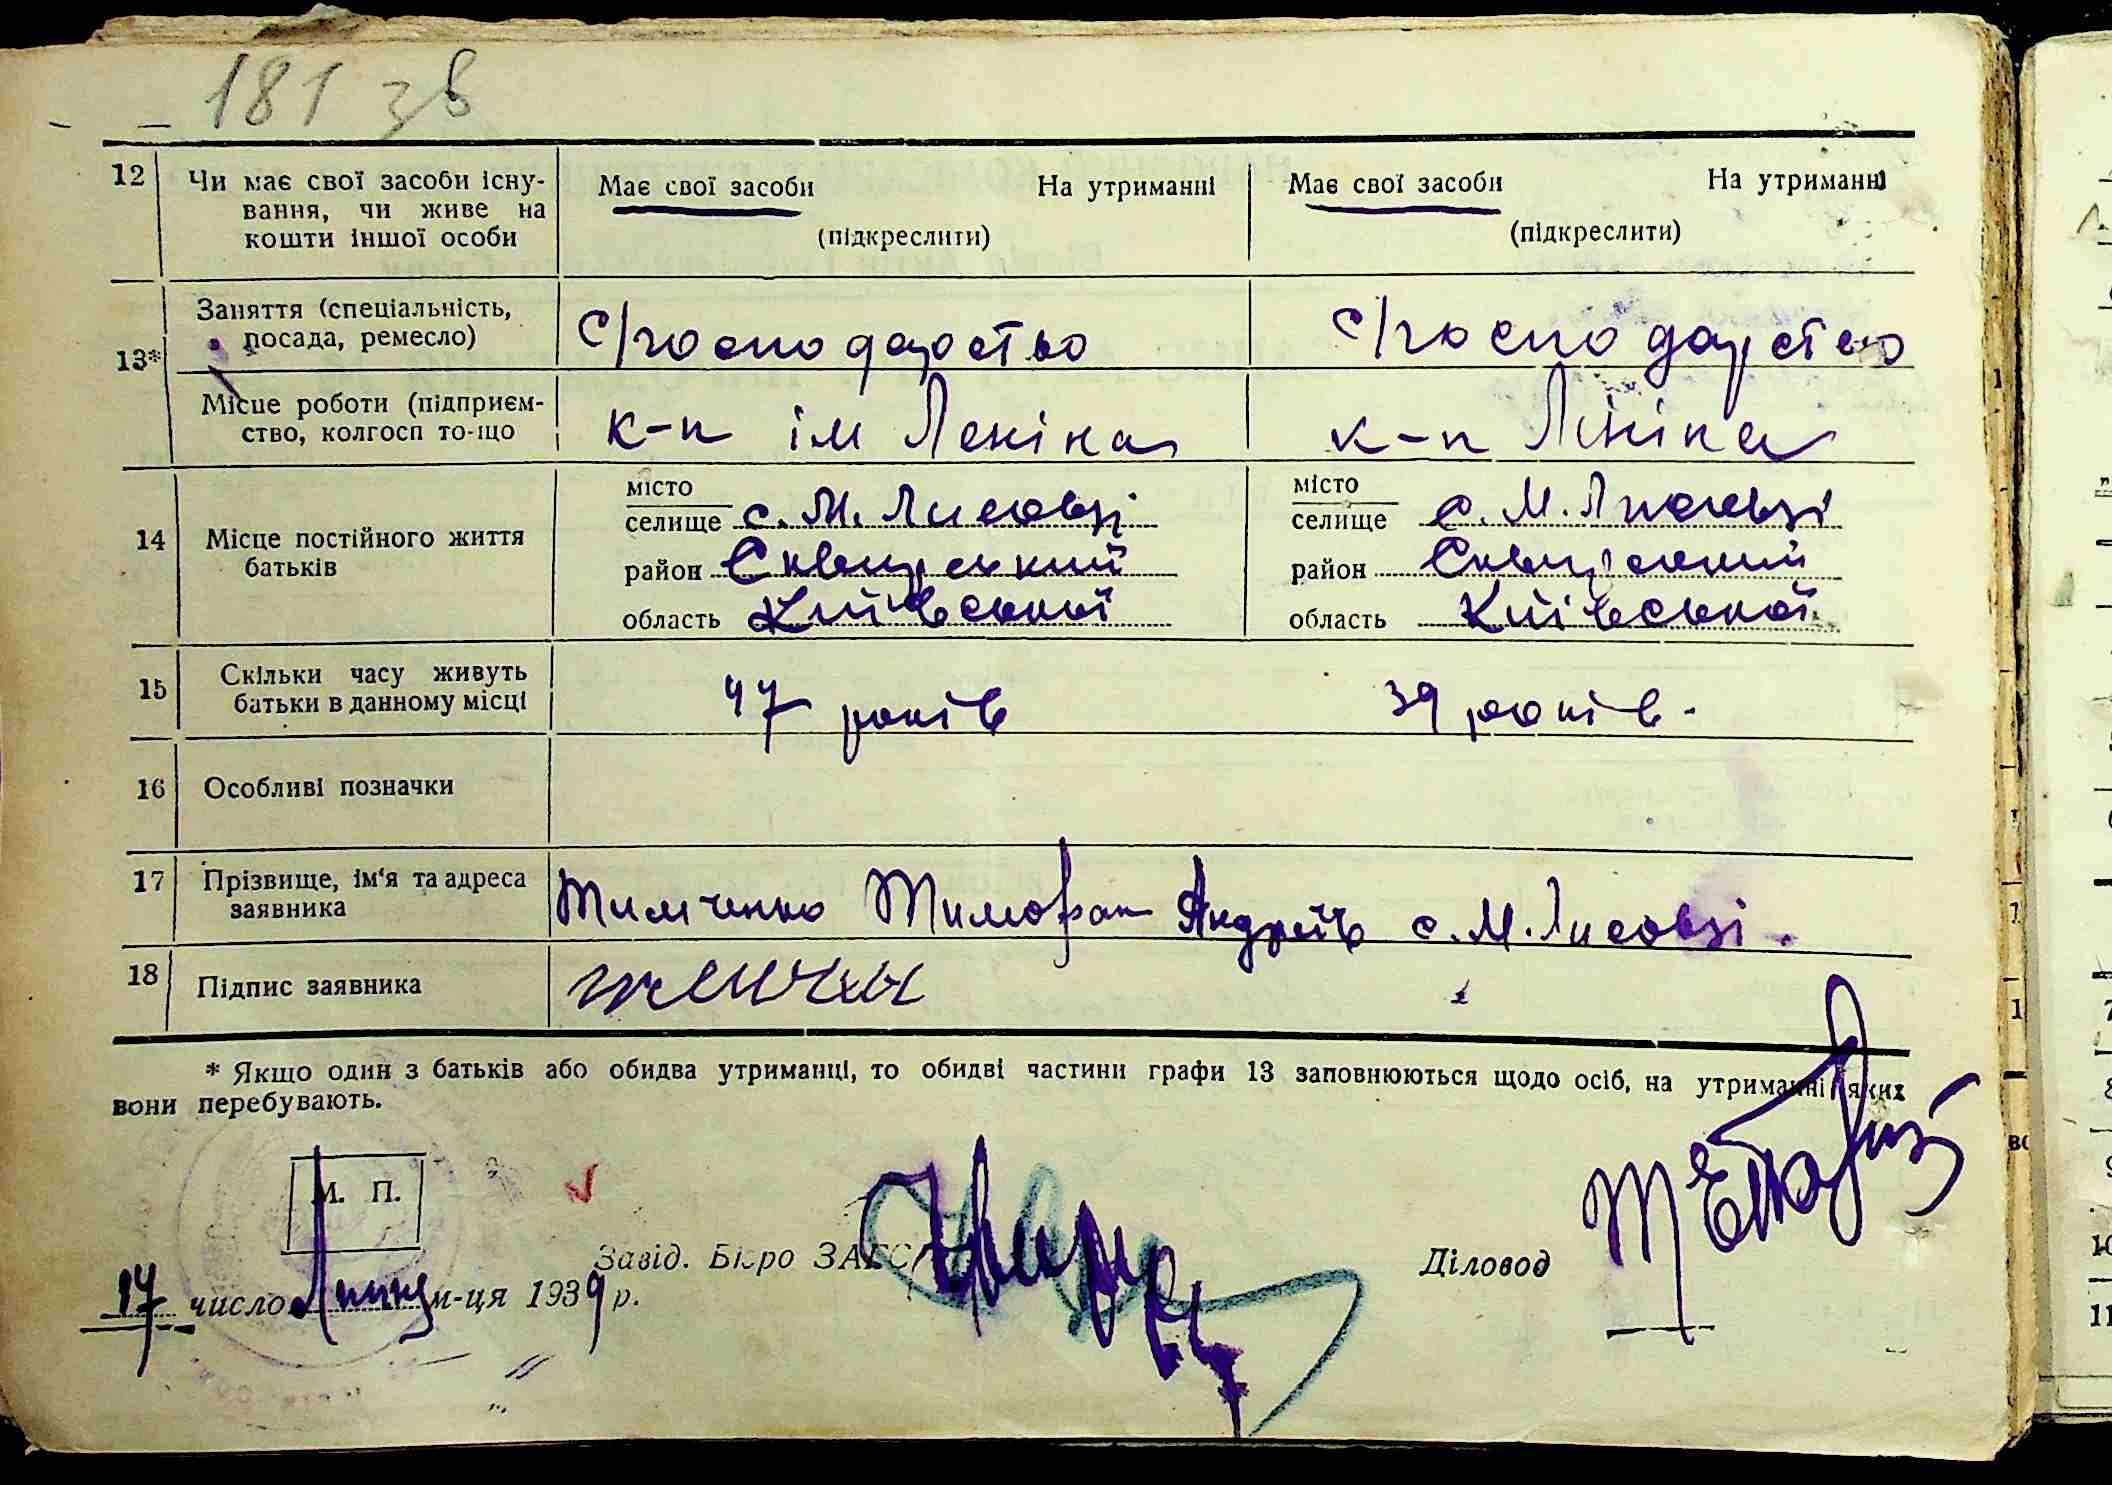 181 зв
12 Чи має свої засоби існу- Має свої засоби На утриманні Має свої засоби На утриманні
вання, чи живе на
кошти іншої особи (підкреслити) (підкреслити)
13* Заняття (спеціальність,
посада, ремесло) с/господарство с/господарство
Місце роботи (підприєм-
ство, колгосп то-що к-п ім Леніна к-п Лініна
14 Місце постійного життя
батьків
місто місто
селище с. М. Лисовзі селище с. М. Лисовзі
район Сквирський район Сквирський
область Київської область Київської
15 Скільки часу живуть
батьки в данному місці 47 років 39 років.
16 Особливі позначки
17 Прізвище, ім'я та адреса
заявника Тимченко Тимофан Андреїв с. М. Лисовзі.
18 Підпис заявника
* Якщо один з батьків або обидва утриманці, то обидві частини графи 13 заповнюються щодо осіб, на утриманні яких
вони перебувають.
М. П.
Завід. Бюро ЗАГС
Діловод
17 число Липня м-ця 1939 р.